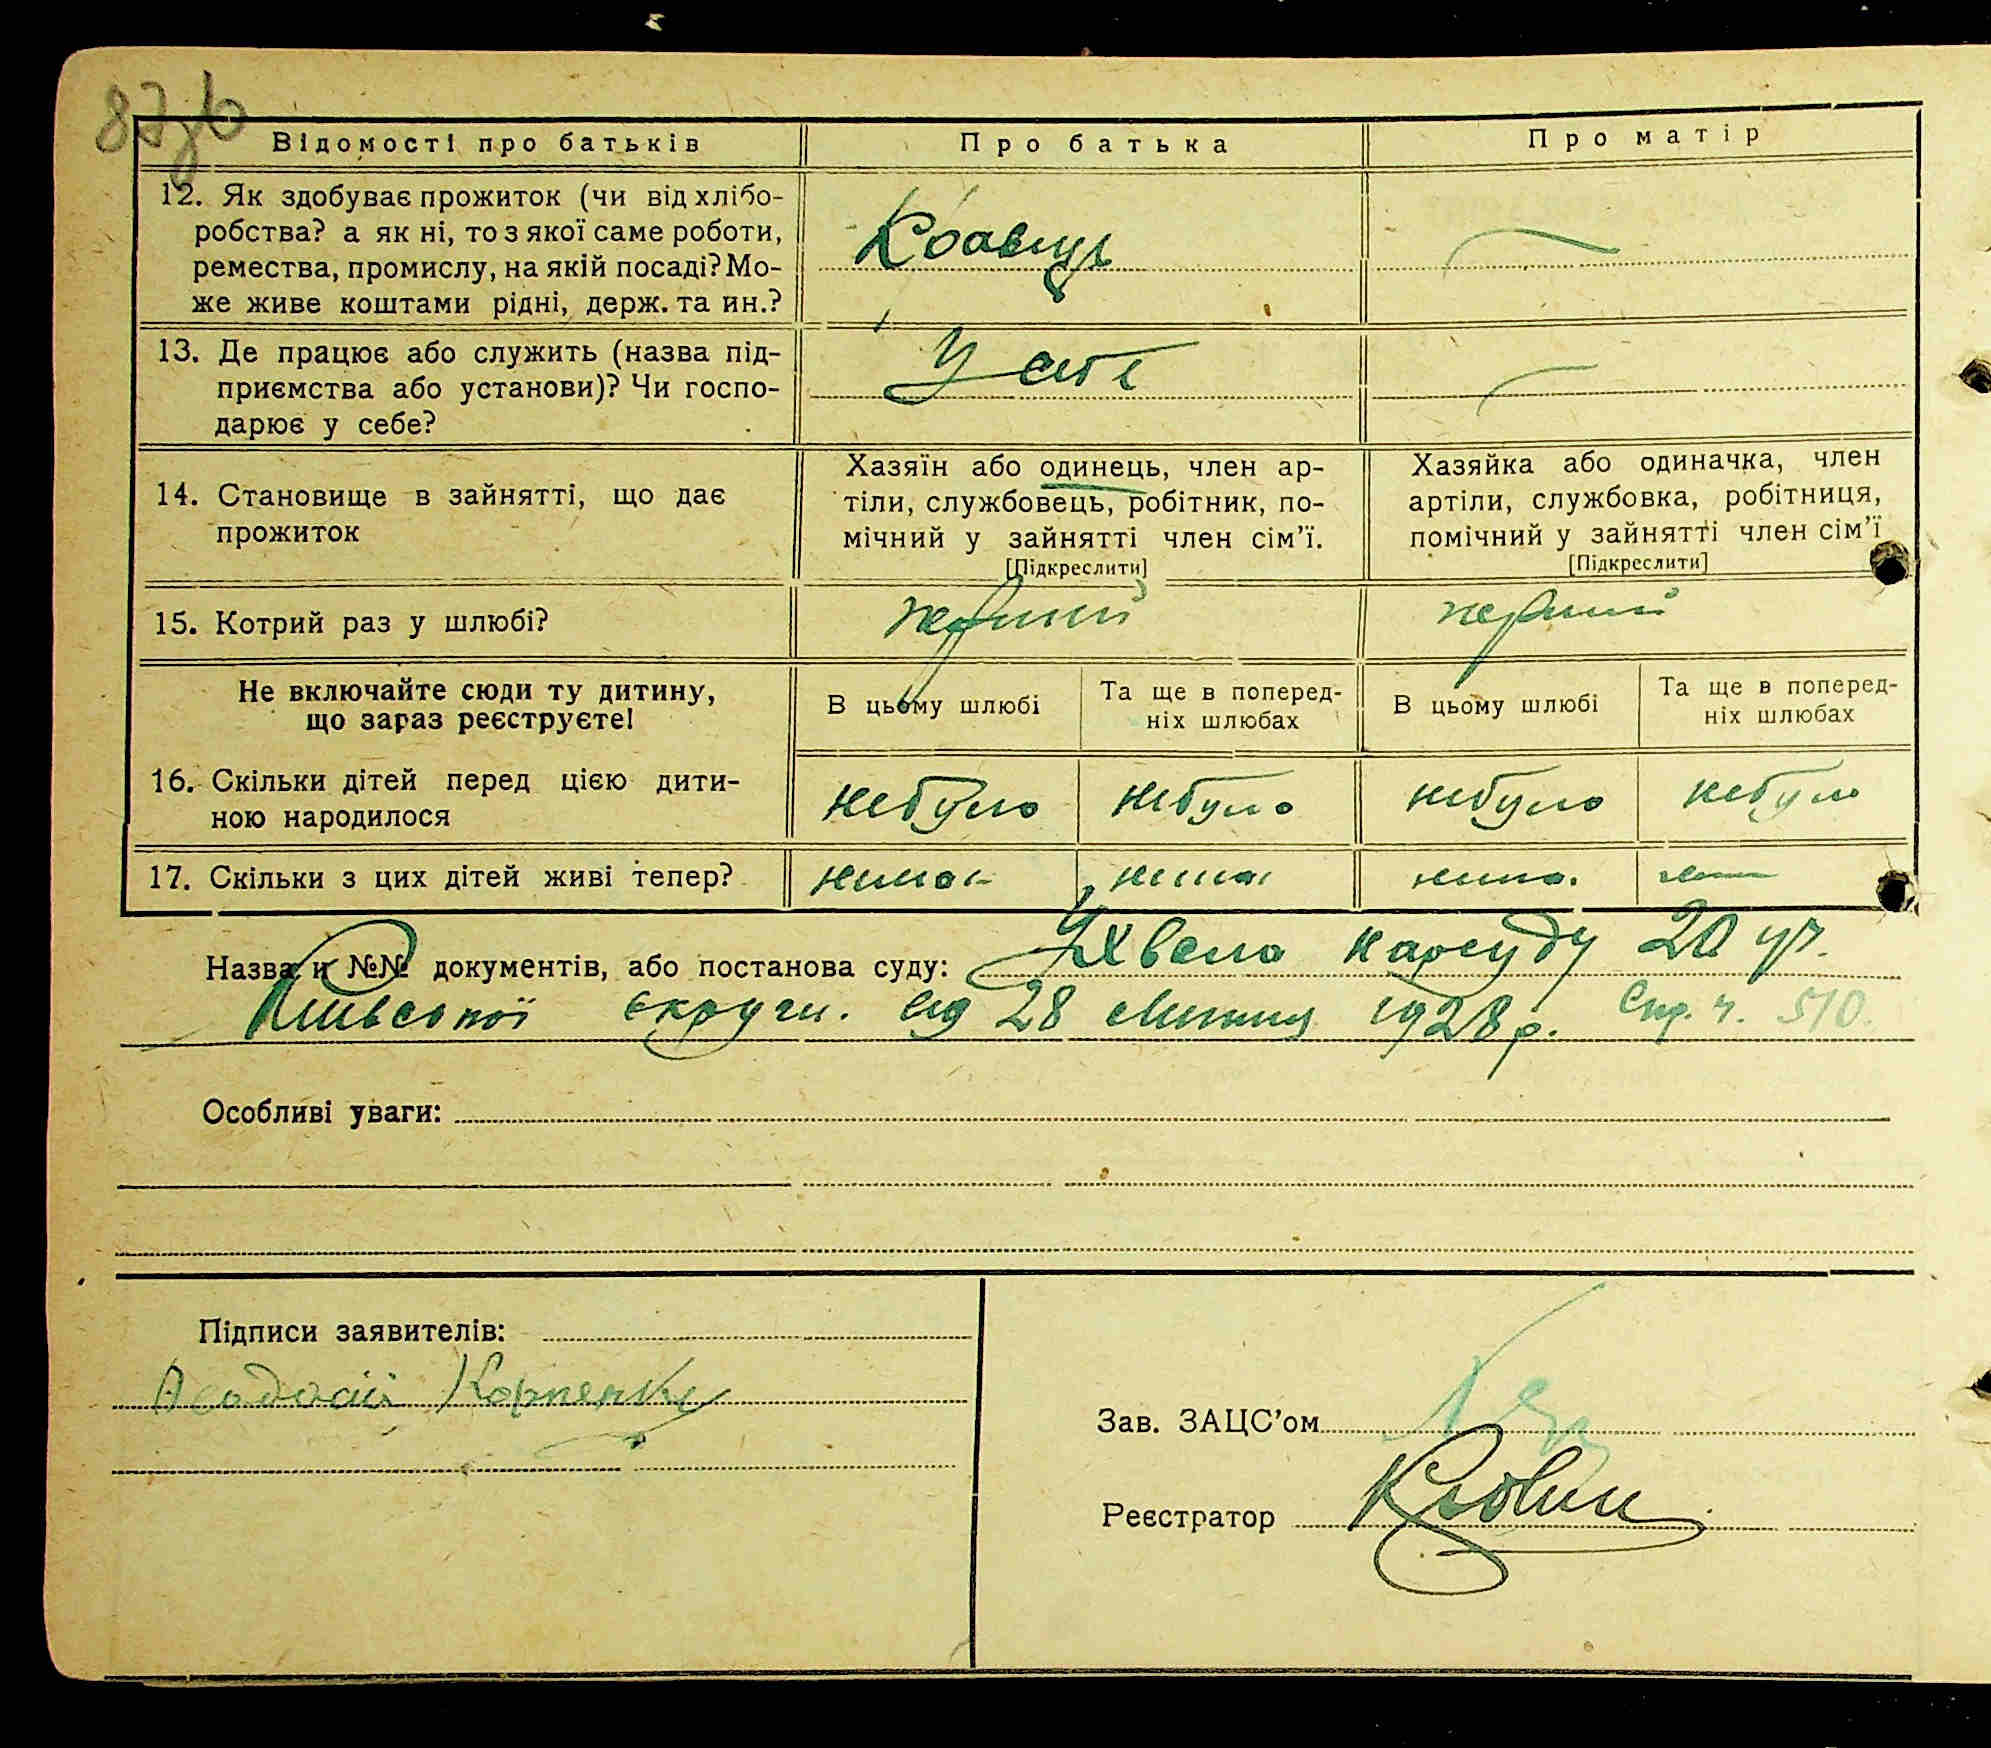 87зв
Відомості про батьків
Про батька
Про матір
12. Як здобуває прожиток (чи від хлібо-
робства? а як ні, то з якої саме роботи,
ремества, промислу, на якій посаді? Мо-
же живе коштами рідні, держ. та ин.?
Кравець
13. Де працює або служить (назва під-
приємства або установи)? Чи госпо-
дарює у себе?
У себе
14. Становище в зайнятті, що дає
прожиток
Хазяїн або одинець, член ар-
тіли, службовець, робітник, по-
мічний у зайнятті член сім’ї.
[Підкреслити]
Хазяйка або одиначка, член
артіли, службовка, робітниця,
помічний у зайнятті член сім’ї
[Підкреслити]
15. Котрий раз у шлюбі?
перший
перший
Не включайте сюди ту дитину,
що зараз реєструєте!
В цьому шлюбі
Та ще в поперед-
ніх шлюбах
В цьому шлюбі
Та ще в поперед-
ніх шлюбах
16. Скільки дітей перед цією дити-
ною народилося
небуло
небуло
небуло
небуло
17. Скільки з цих дітей живі тепер?
немає
немає
нема.
Назва и №№ документів, або постанова суду: Ухвала нарсуду 20 уч.
Київської округи. від 28 липня 1928 р. Спр. ч. 510.
Особливі уваги:
Підписи заявителів:
Зав. ЗАЦС’ом
Реєстратор